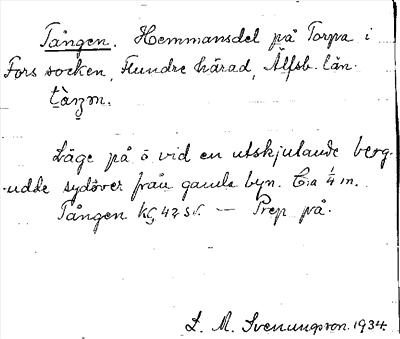 Tången. Hemmansdel på Torpa i
Fors socken, Flundre härad, Älfsb. län.
Läge på ö vid en utskjulande berg-
-udde sydöver från gamla byn. C:a ¼ m.
Tången 42 — Prep på.
L. M. Svenungsson. 1934.